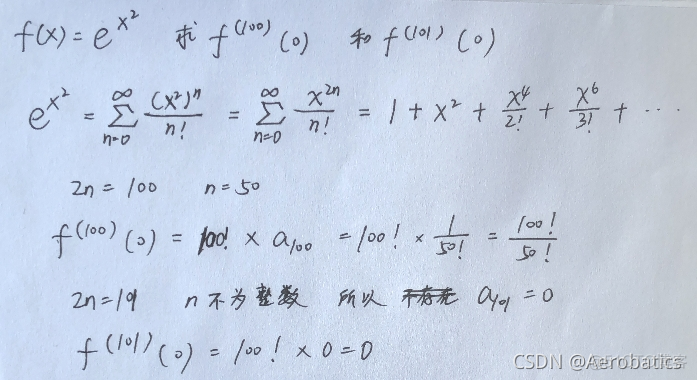 f(x) = e^{x^2} 求 f^{(100)}(0) 和 f^{(101)}(0)
e^{x^2} = \sum_{n=0}^{\infty} \frac{(x^2)^n}{n!} = \sum_{n=0}^{\infty} \frac{x^{2n}}{n!} = 1 + x^2 + \frac{x^4}{2!} + \frac{x^6}{3!} + ...
2n = 100 n = 50
f^{(100)}(0) = 100! × a_{100} = 100! × \frac{1}{50!} = \frac{100!}{50!}
2n = 101 n 不为整数 所以 a_{101} = 0
f^{(101)}(0) = 100! × 0 = 0
CSDN @Aerobatics